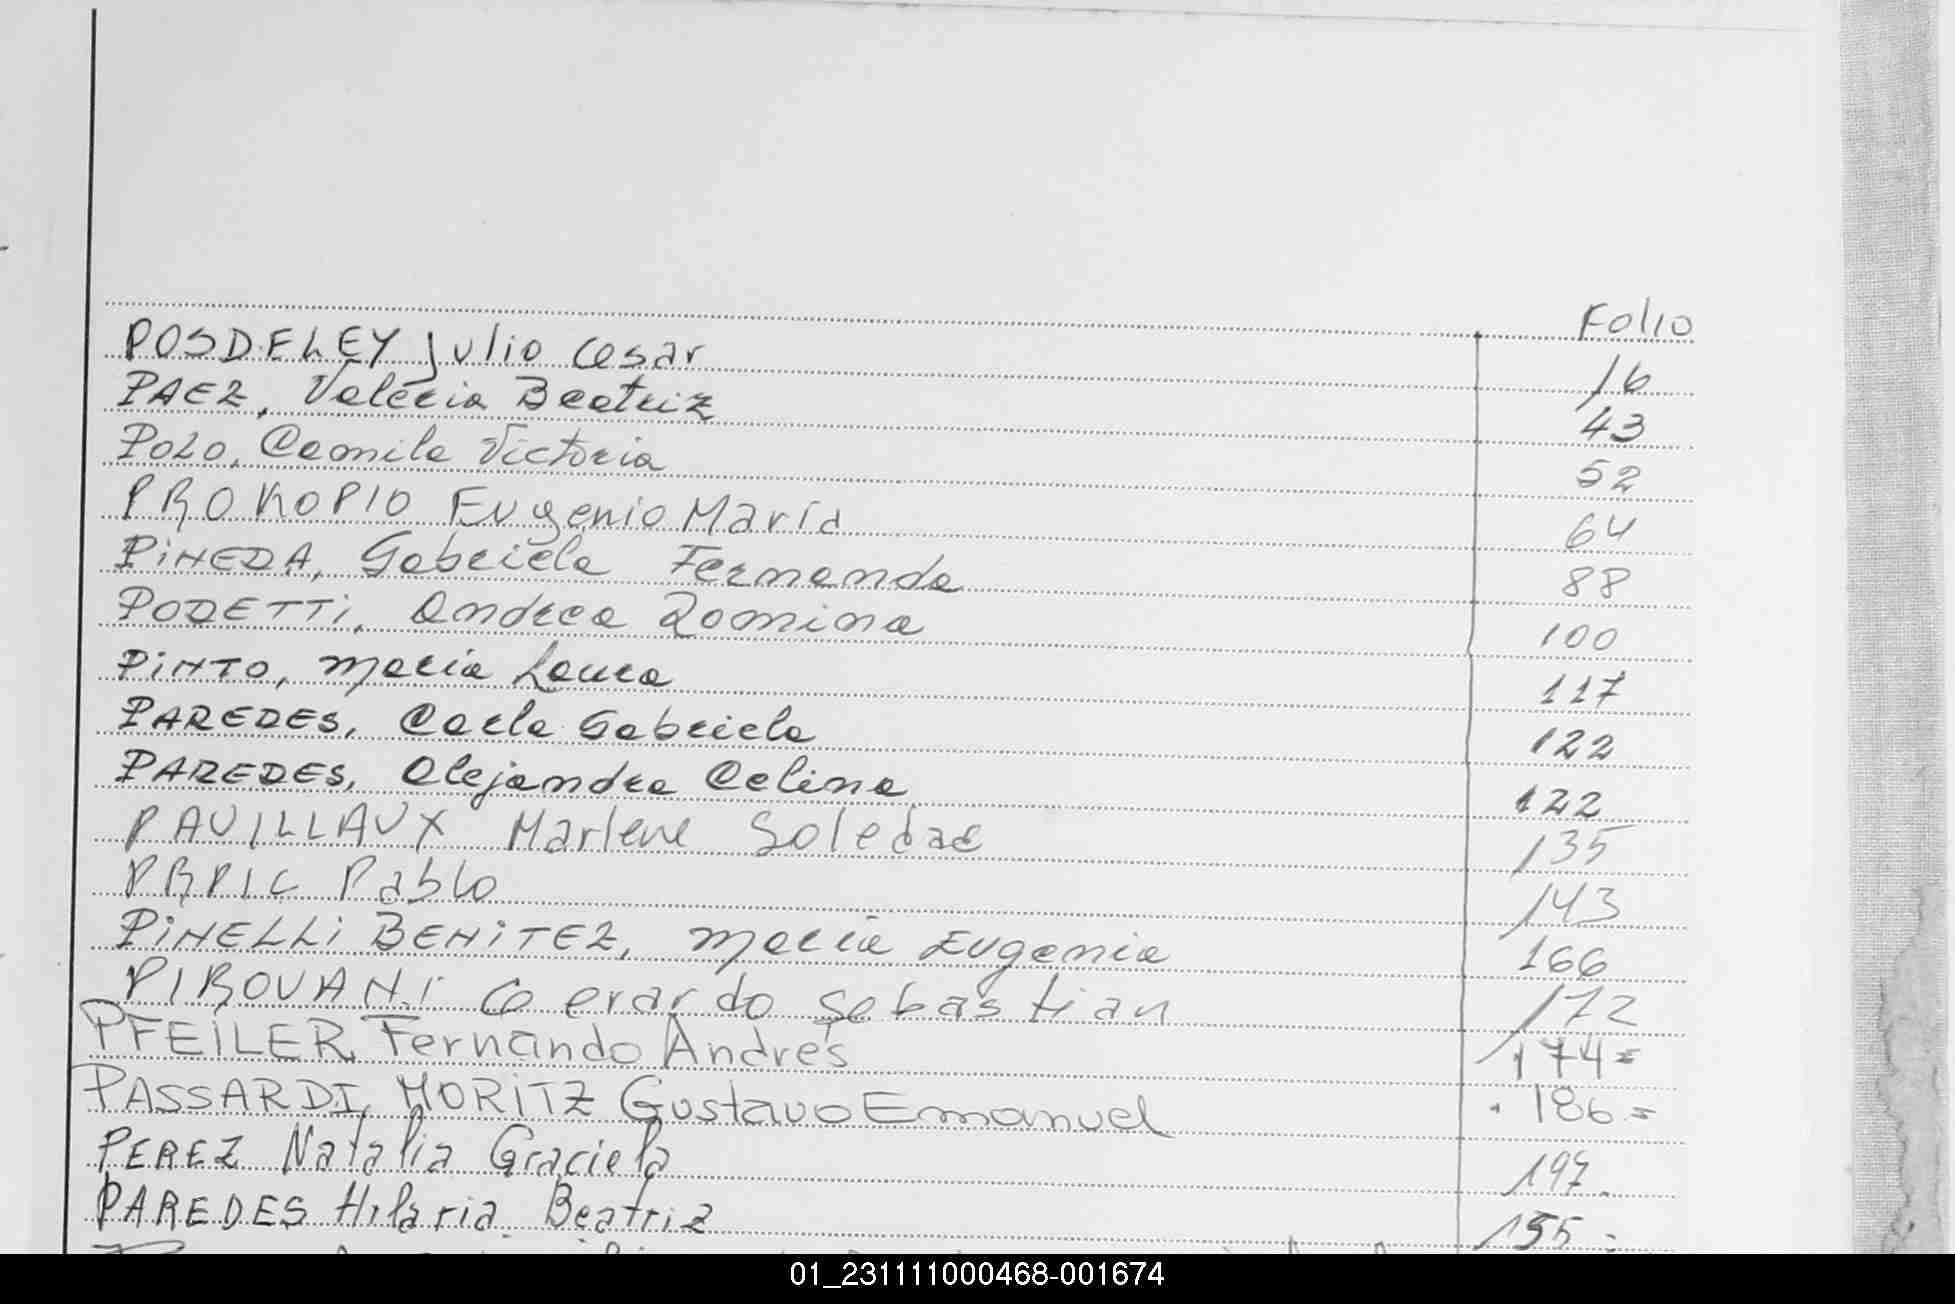 Folio
POSDELEY Julio Cesar 16
PAEZ, Valeria Beatriz 43
POLO, Camila Victoria 52
PROKOPIO Eugenio María 64
PINEDA, Gabriela Fernanda 88
PODETTI, Andrea Romina 100
PINTO, María Laura 117
PAREDES, Carla Gabriela 122
PAREDES, Alejandra Celina 122
PAUILLAUX Marlene Soledad 135
PRPIC Pablo 143
PINELLI BENITEZ, María Eugenia 166
PIROVANI Gerardo Sebastian 172
PFEILER, Fernando Andrés 174=
PASSARDI, MORITZ Gustavo Emanuel 186=
PEREZ Natalia Graciela 197.
PAREDES Hilaria Beatriz 155=
01_231111000468-001674